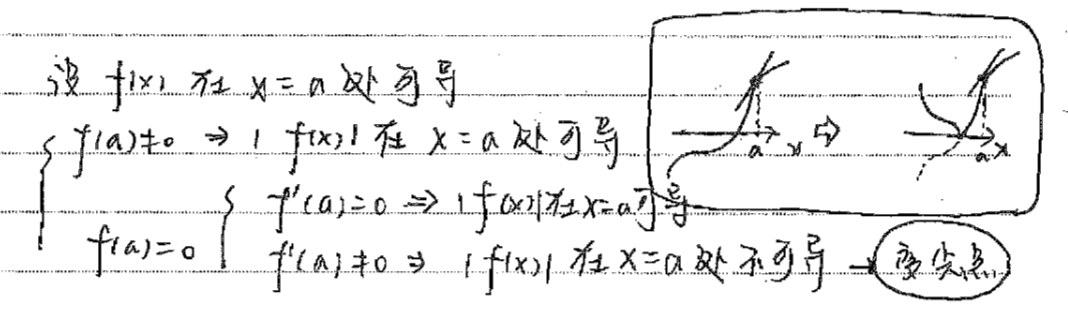 设 f(x) 在 x=a 处可导
f(a)≠0 ⇒ | f(x)| 在 x=a 处可导
f'(a)=0 ⇒ |f(x)|在x=a可导
f(a)=0
f'(a)≠0 ⇒ |f(x)| 在 x=a 处不可导 → 变尖点
a x ⇒ a x